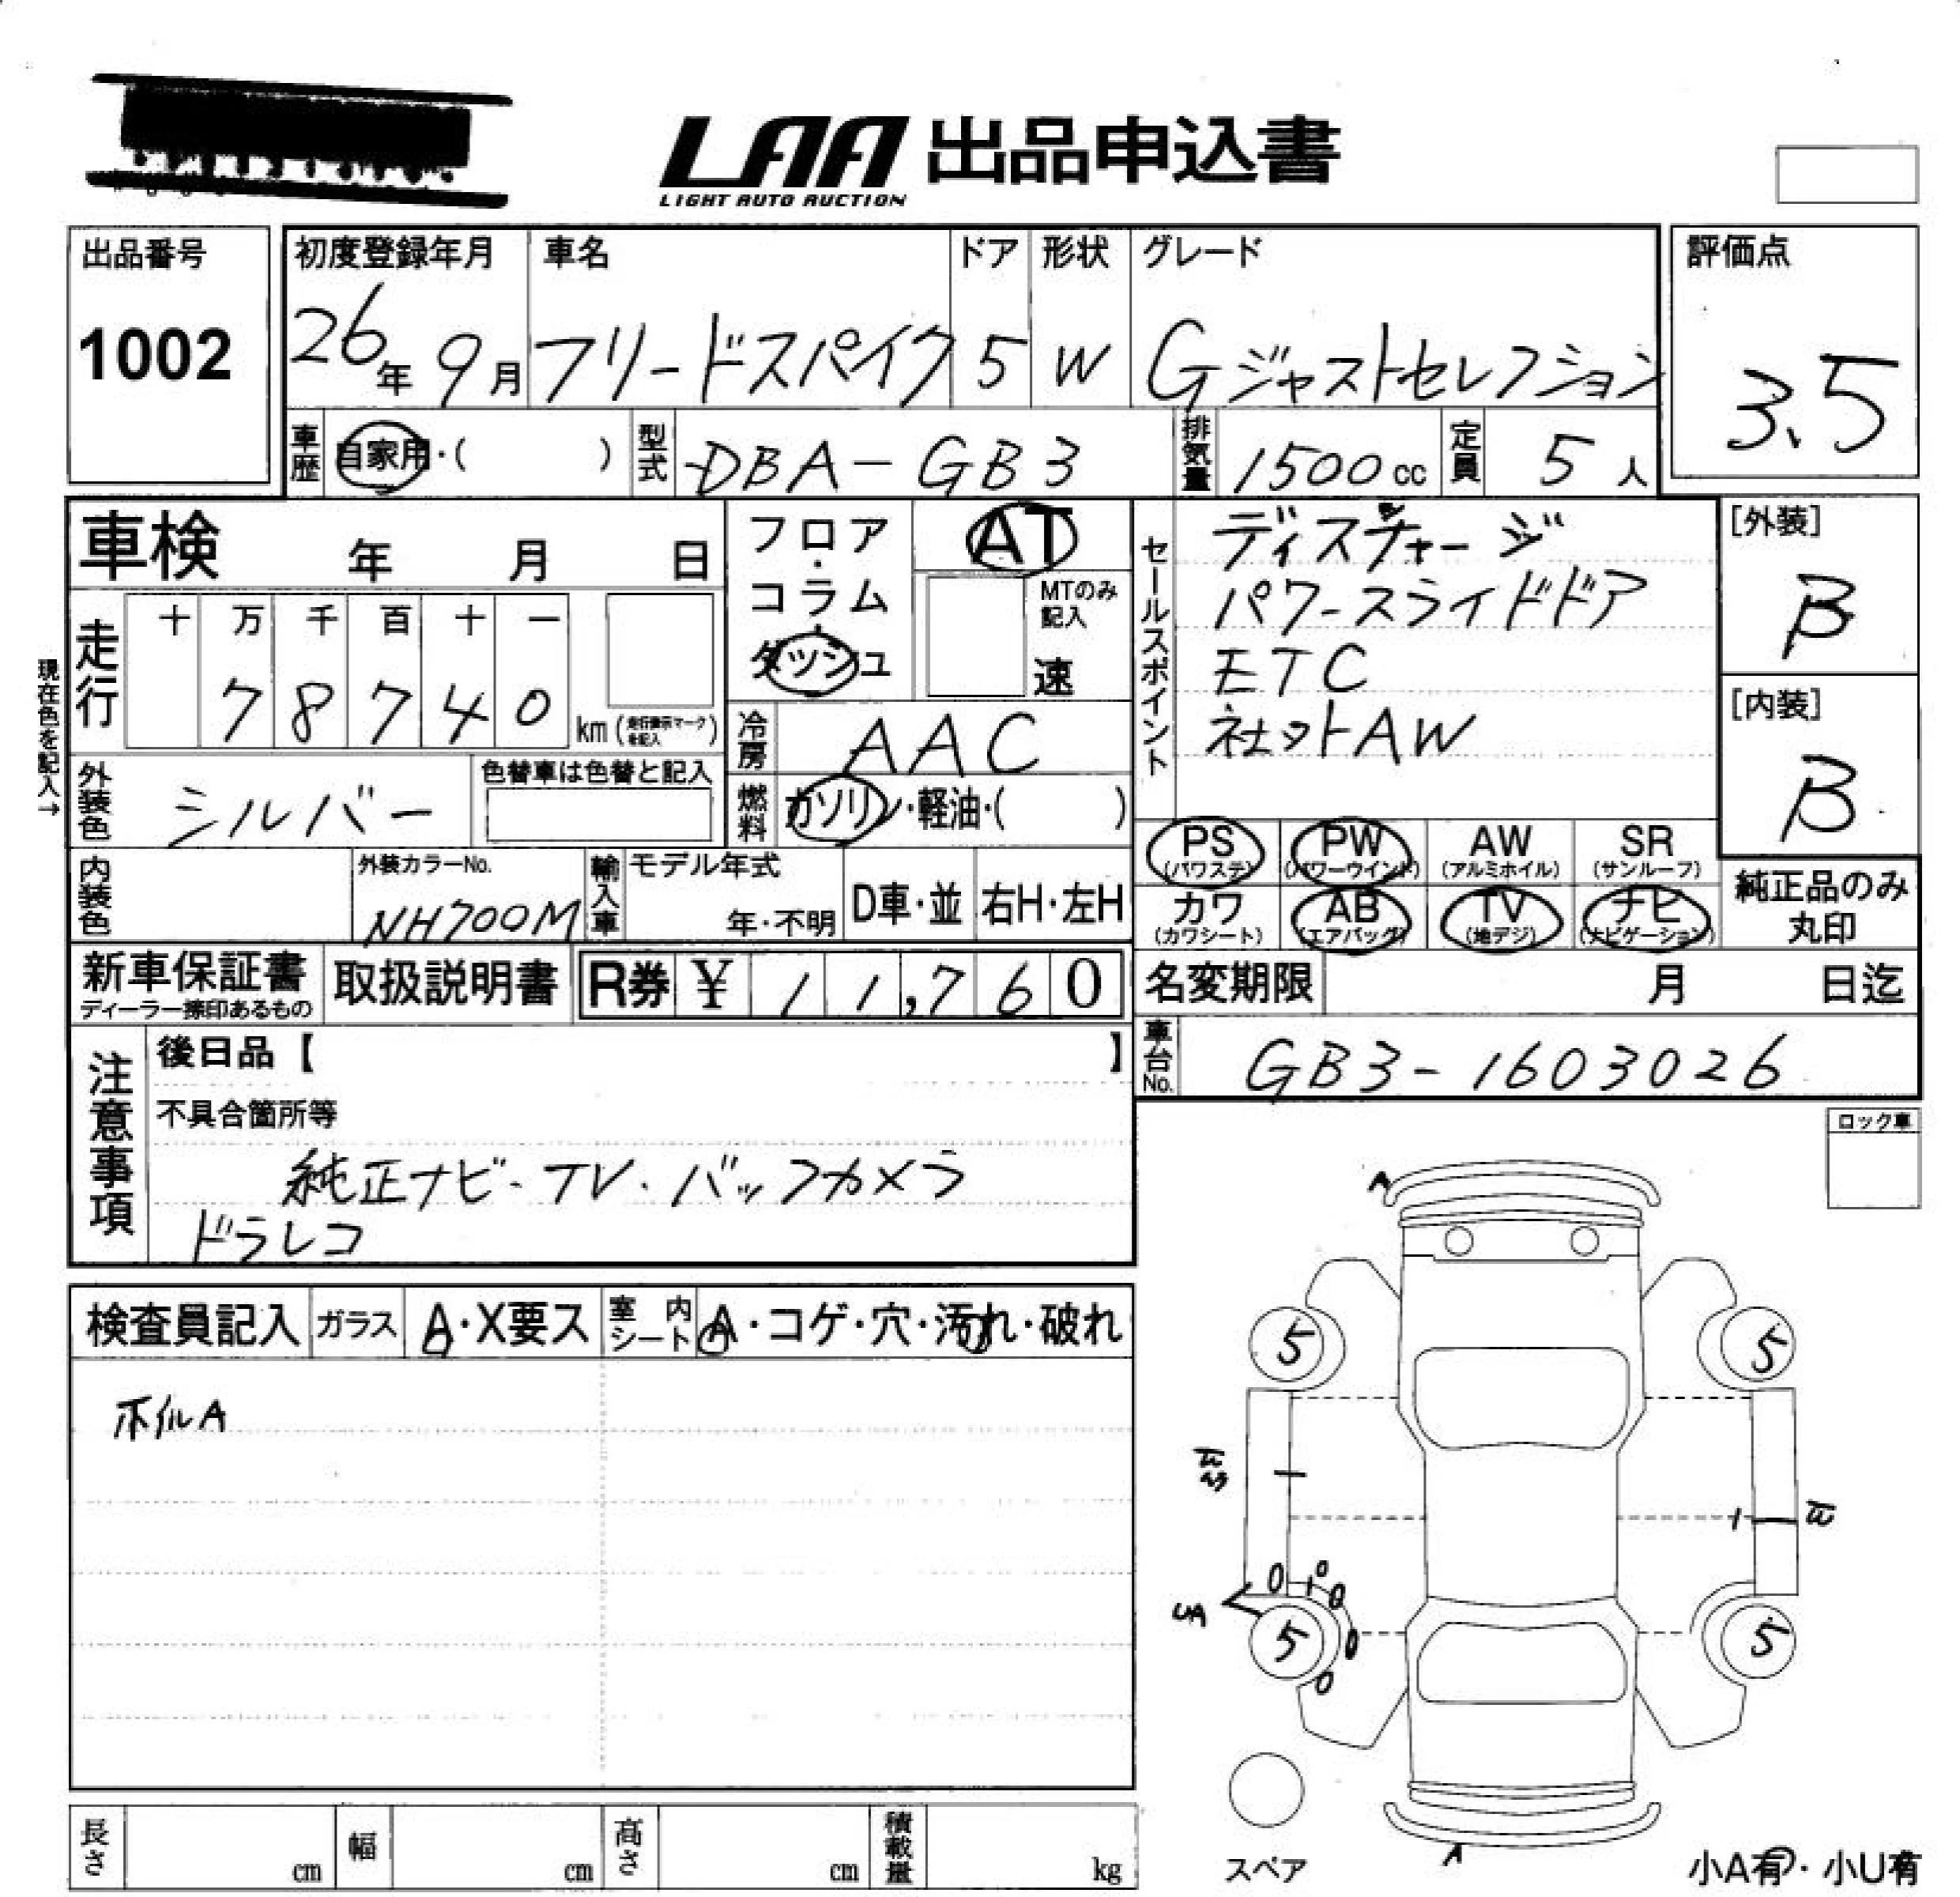 LAA 出品申込書
LIGHT AUTO AUCTION
出品番号 初度登録年月 車名 ドア 形状 グレード 評価点
1002 26年 9月 フリードスパイク 5 W Gジャストセレクション 3.5
車歴 自家用・( ) 型式 DBA-GB3 排気量 1500cc 定員 5人
車検 年 月 日
フロア・コラム・ダッシュ
AT
MTのみ記入
速
セールスポイント
ディスチャージ
パワースライドドア
ETC
社ットAW
[外装]
B
[内装]
B
現在色を記入→
走行 十 万 千 百 十 一
78740 km (走行表示マークを記入)
冷房 AAC
外装色 シルバー 色替車は色替と記入
燃料 ガソリン・軽油・( )
PS (パワステ) PW (パワーウインド) AW (アルミホイル) SR (サンルーフ)
カワ (カワシート) AB (エアバッグ) TV (地デジ) ナビ (ナビゲーション)
純正品のみ丸印
内装色 外装カラーNo. NH700M 輸入車 モデル年式 年・不明 D車・並 右H・左H
新車保証書 ディーラー捺印あるもの 取扱説明書 R券 ¥ 11,760
名変期限 月 日迄
車台No. GB3-1603026
注意事項
後日品【 】
不具合箇所等
純正ナビ・TV・バックカメラ
ドラレコ
ロック車
検査員記入 ガラス A・X要ス 室内シート A・コゲ・穴・汚れ・破れ
ホイルA
A
5 5
UA
5 5
A
スペア
小A有・小U有
長さ cm 幅 cm 高さ cm 積載量 kg